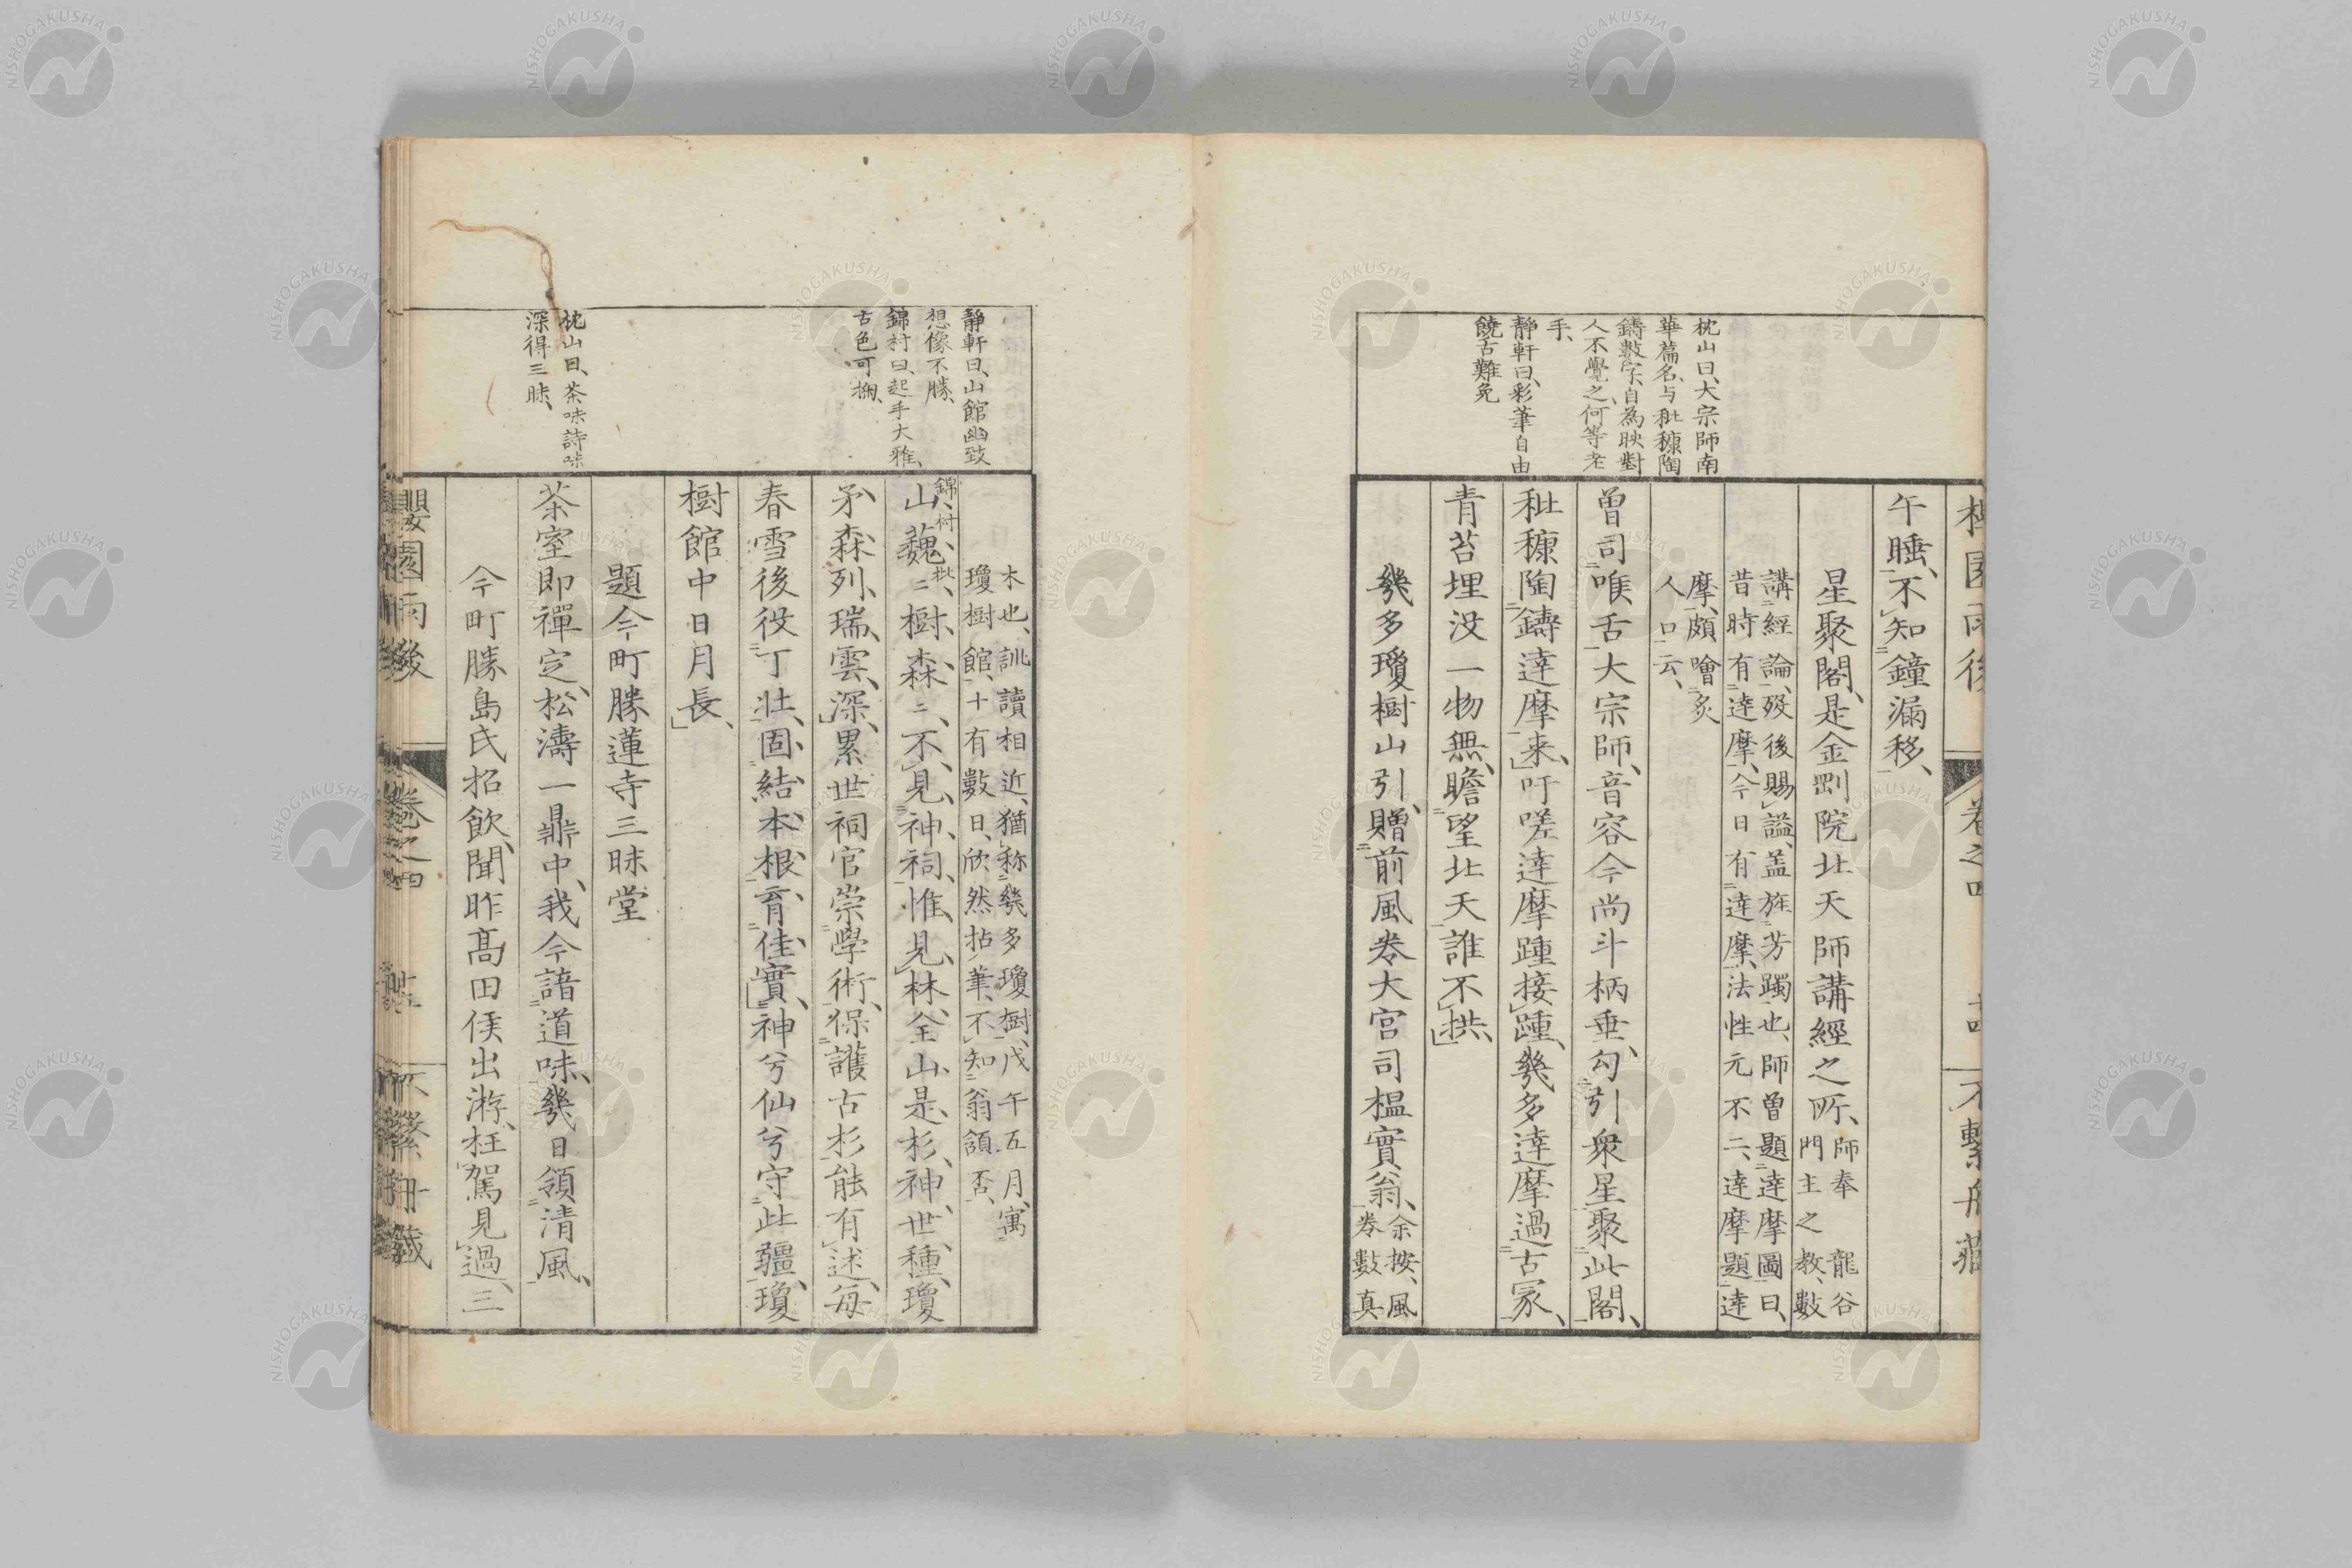 枕山曰、大宗師南
華篇名、与秕糠陶
鑄數字、自為映對
人不覺之、何等老
手、
静軒曰、彩筆自由
饒舌難免
午睡、不知鐘漏移、
星聚閣、是金剛院北天師講經之所、師奉龍谷
門主之教、數
講經論、歿後賜謚、盖旌芳躅也、師曽題達摩圖曰、
昔時有達摩、今日有達摩、法性元不二、達摩題達
摩、頗噲炙
人口云、
曽司喉舌大宗師、音容今尚斗柄垂、勾引衆星聚此閣、
秕糠陶鑄達摩来、吁嗟達摩踵接踵、幾多達摩過古冢、
青苔埋没一物無、瞻望北天誰不拱、
幾多瓊樹山引、贈前風巻大宮司榲實翁、余按、風
巻數真
静軒曰、山館幽致
想像不勝、
錦村曰、起手大雅、
古色可掬、
枕山曰、茶味詩味
深得三昧、
木也、訓讀相近、猶称幾多瓊樹、戊午五月、寓
瓊樹館、十有數日、欣然拈筆、不知翁頷否、
錦村批
山、巍二、樹、森二、不見神祠、惟見林、全山是杉、神世種、瓊
矛森列、瑞雲深、累世祠官崇學術、保護古杉能有述、毎
春雪後役丁壮、固結本根育佳實、神兮仙兮守此疆、瓊
樹館中日月長、
題今町勝蓮寺三昧堂
茶室即禪定、松濤一鼎中、我今諳道味、幾日領清風、
今町勝島氏招飲、聞昨髙田侯出游、枉駕見過、三
櫻園雨後
巻之四
不繫舟藏